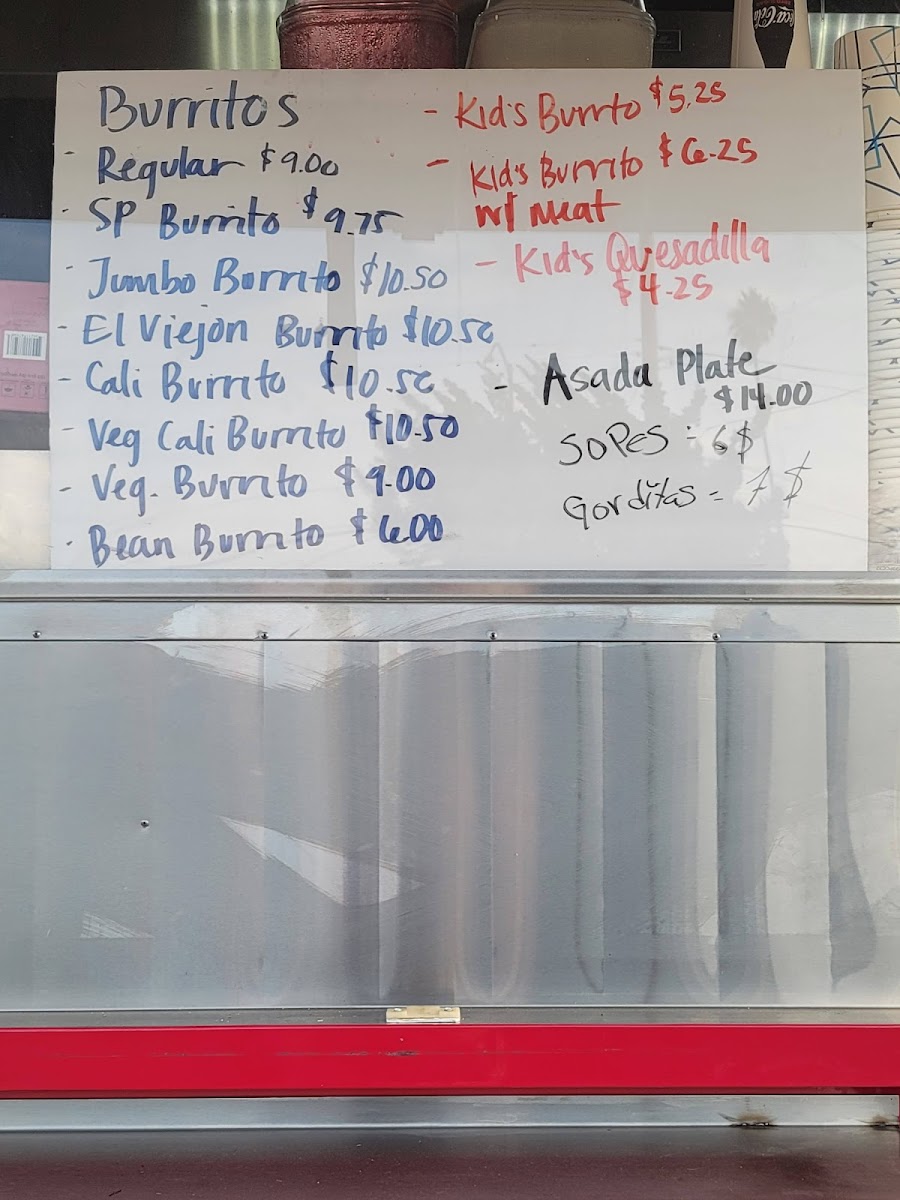 Burritos
- Regular $9.00
- SP Burrito $9.75
- Jumbo Burrito $10.50
- El Viejon Burrito $10.50
- Cali Burrito $10.50
- Veg Cali Burrito $10.50
- Veg. Burrito $9.00
- Bean Burrito $6.00
- Kid's Burrito $5.25
- Kid's Burrito $6.25
w/ Meat
- Kid's Quesadilla
$4.25
- Asada Plate
$14.00
SOPES = 6$
Gorditas = 7$
Coca-Cola